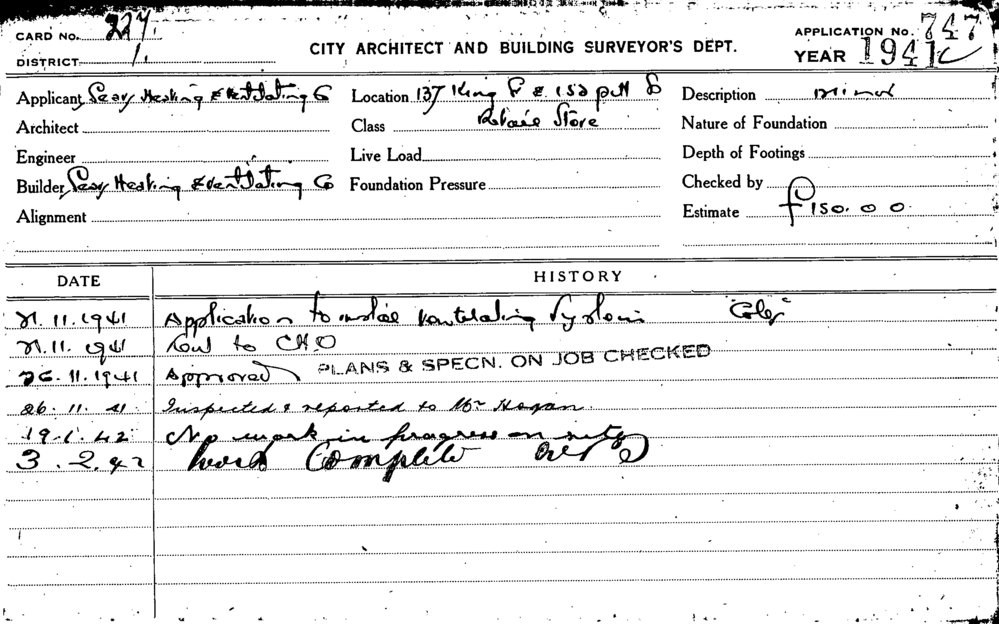 CARD No. 227. CITY ARCHITECT AND BUILDING SURVEYOR'S DEPT. APPLICATION No. 747
DISTRICT 1. YEAR 1941
Applicant Heating & Ventilating Co Location 137 King St & 152 Pitt St Description Minor
Architect Class Retail Store Nature of Foundation
Engineer Live Load Depth of Footings
Builder Heating & Ventilating Co Foundation Pressure Checked by
Alignment Estimate £150.0.0
DATE HISTORY
21.11.1941 Application to install Ventilating System "Coles"
21.11.1941 to C.H.O
26.11.1941 Approved PLANS & SPECN. ON JOB CHECKED
26.11.41 Inspected & reported to Mr Hogan
19.1.42 No work in progress on site
3.2.42 Work Complete